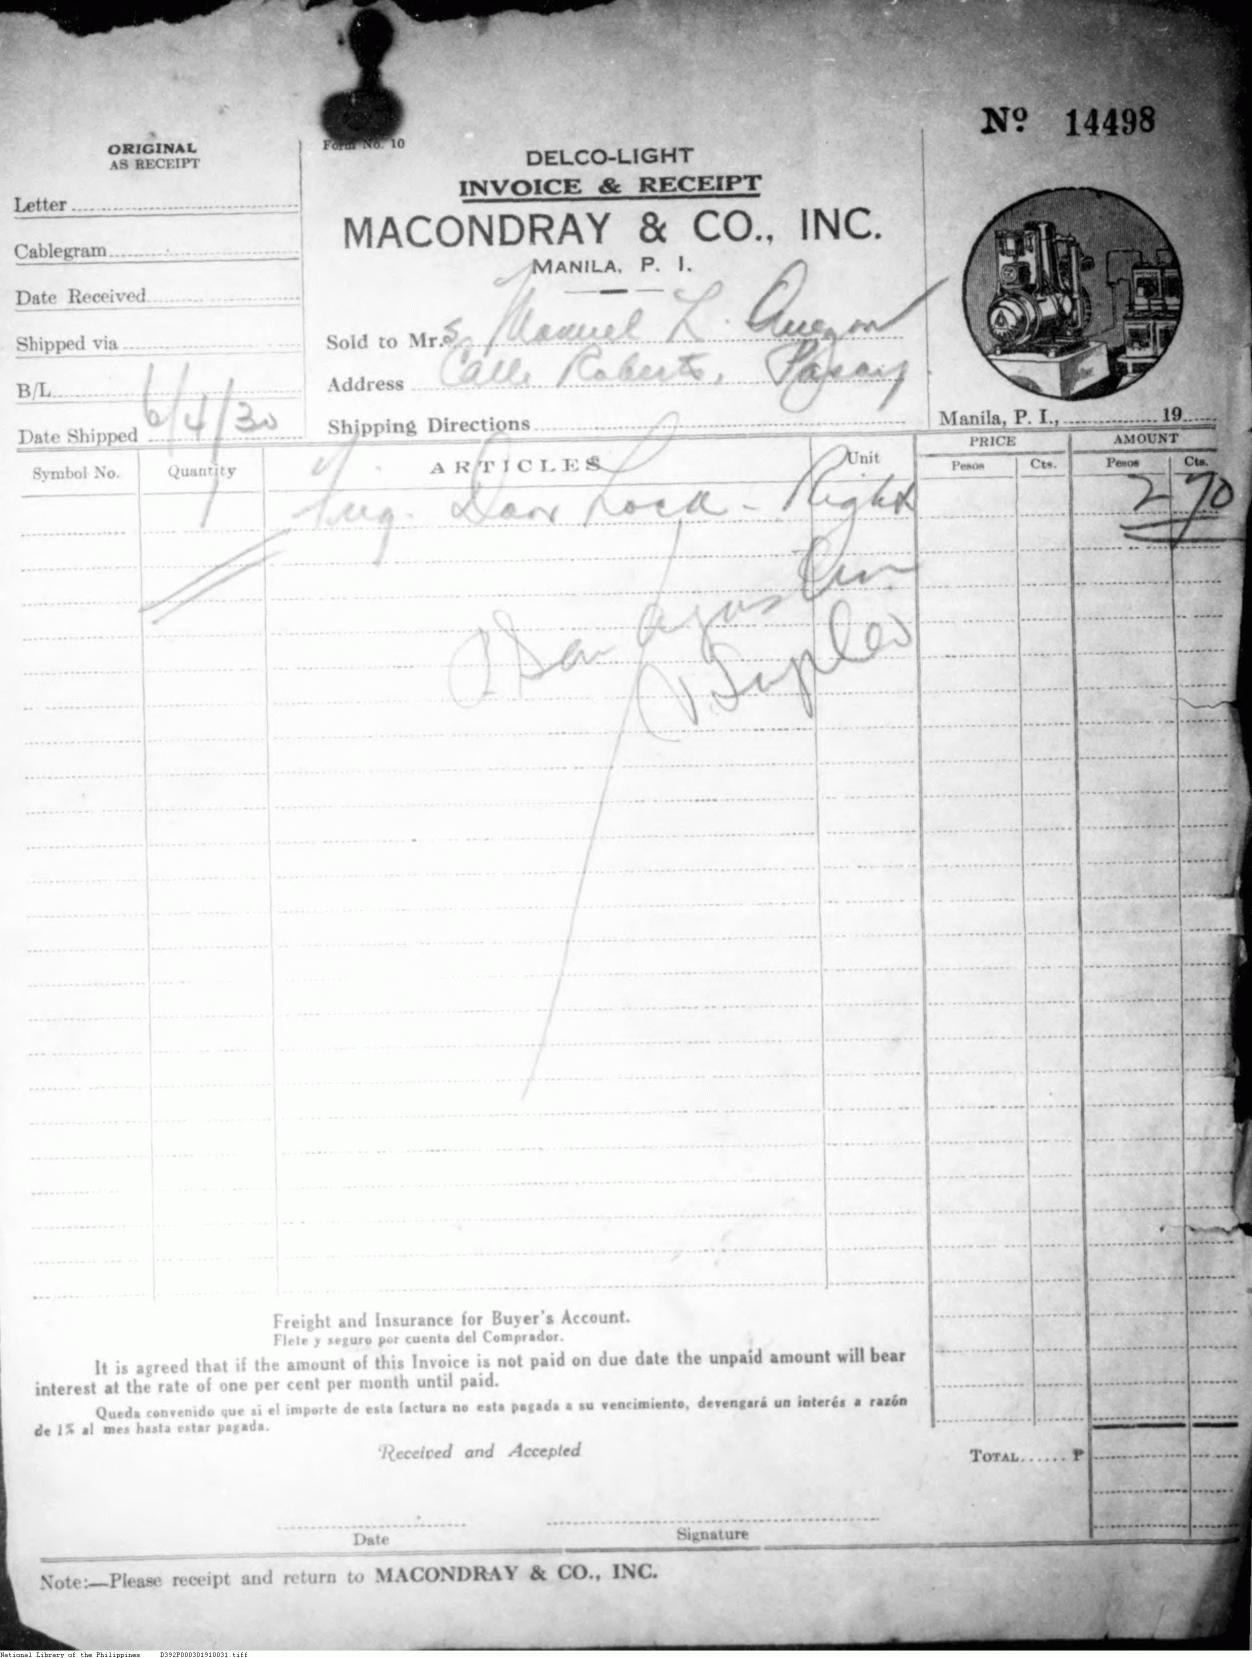 Nº 14498
ORIGINAL
AS RECEIPT
Form No. 10
DELCO-LIGHT
INVOICE & RECEIPT
MACONDRAY & CO., INC.
MANILA, P. I.
Letter
Cablegram
Date Received
Shipped via
B/L
Date Shipped 6/4/30
Sold to Mr.s Manuel L. Quezon
Address Calle Roberts, Pasay
Shipping Directions
Manila, P. I., 19
Symbol No. Quantity ARTICLES Unit PRICE AMOUNT
Pesos Cts. Pesos Cts.
1 Door Lock - Right 2 70
San Agustin
Freight and Insurance for Buyer's Account.
Flete y seguro por cuenta del Comprador.
It is agreed that if the amount of this Invoice is not paid on due date the unpaid amount will bear
interest at the rate of one per cent per month until paid.
Queda convenido que si el importe de esta factura no esta pagada a su vencimiento, devengará un interés a razón
de 1% al mes hasta estar pagada.
Received and Accepted
TOTAL...... ₱
Date Signature
Note:—Please receipt and return to MACONDRAY & CO., INC.
National Library of the Philippines D392P000301910031.tiff